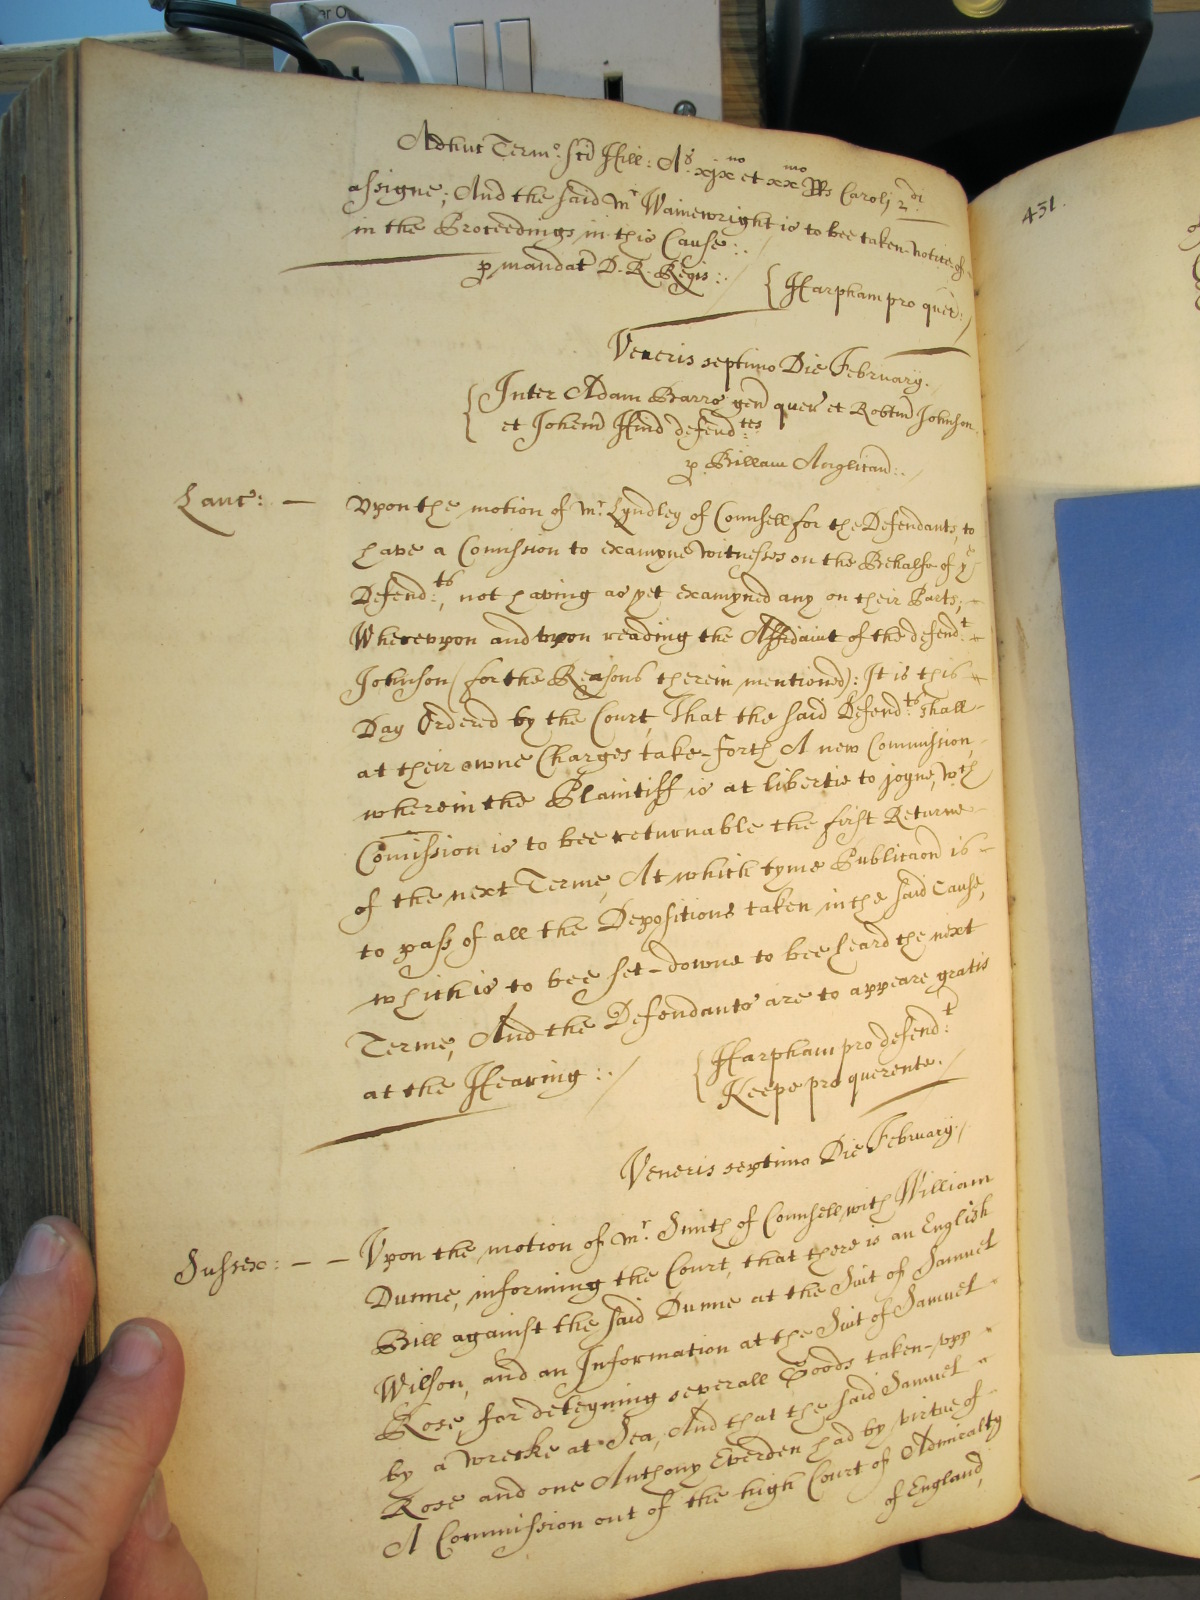 Adhuc Termo: Scd Hill: Ao. xixno et xxmo Rs Caroli 2di
431.
assigne; And the said Mr Wainewright is to bee taken notice of
in the Proceedings in this Cause:.
p mandat D. R. Regis:.
{Harpham pro quer:
Veneris septimo Die February.
{Inter Adam Barro gen quer et Robtm Johnson
et Johem Hind defend:tes
p Billam Anglican:.
Lanc: — Vpon the motion of Mr. Lyndley of Counsell for the Defendants, to
have a Comission to examyne Witnesses on the Behalfe of ye
Defend:ts, not having as yet examyned any on their Parts;
Wherevpon and vpon reading the Affidavit of the defend:t
Johnson (for the Reasons therein mentioned): It is this
Day Ordered by the Court, That the said Defend:ts shall
at their owne Charges take-forth A new Commission,
wherein the Plaintiff is at libertie to joyne, wch
Comission is to bee returnable the first Returne
of the next Terme, At which tyme Publicaon is
to pass of all the Depositions taken in the said Cause,
which is to bee set-downe to bee heard the next
Terme, And the Defendants are to appeare gratis
at the Hearing:.
{Harpham pro defend:t
Keepe pro querente.
Veneris septimo Die February.
Sussex: — — Vpon the motion of Mr. Smith of Counsell with William
Dunne, informing the Court, that there is an English
Bill against the said Dunne at the Suit of Samuel
Wilson, and an Information at the Suit of Samuel
Rose, for deteyning severall Goods taken-vpp
by a wrecke at Sea, And that the said Samuel
Rose and one Anthony Everden had by virtue of
A Commission out of the high Court of Admiralty
of England,